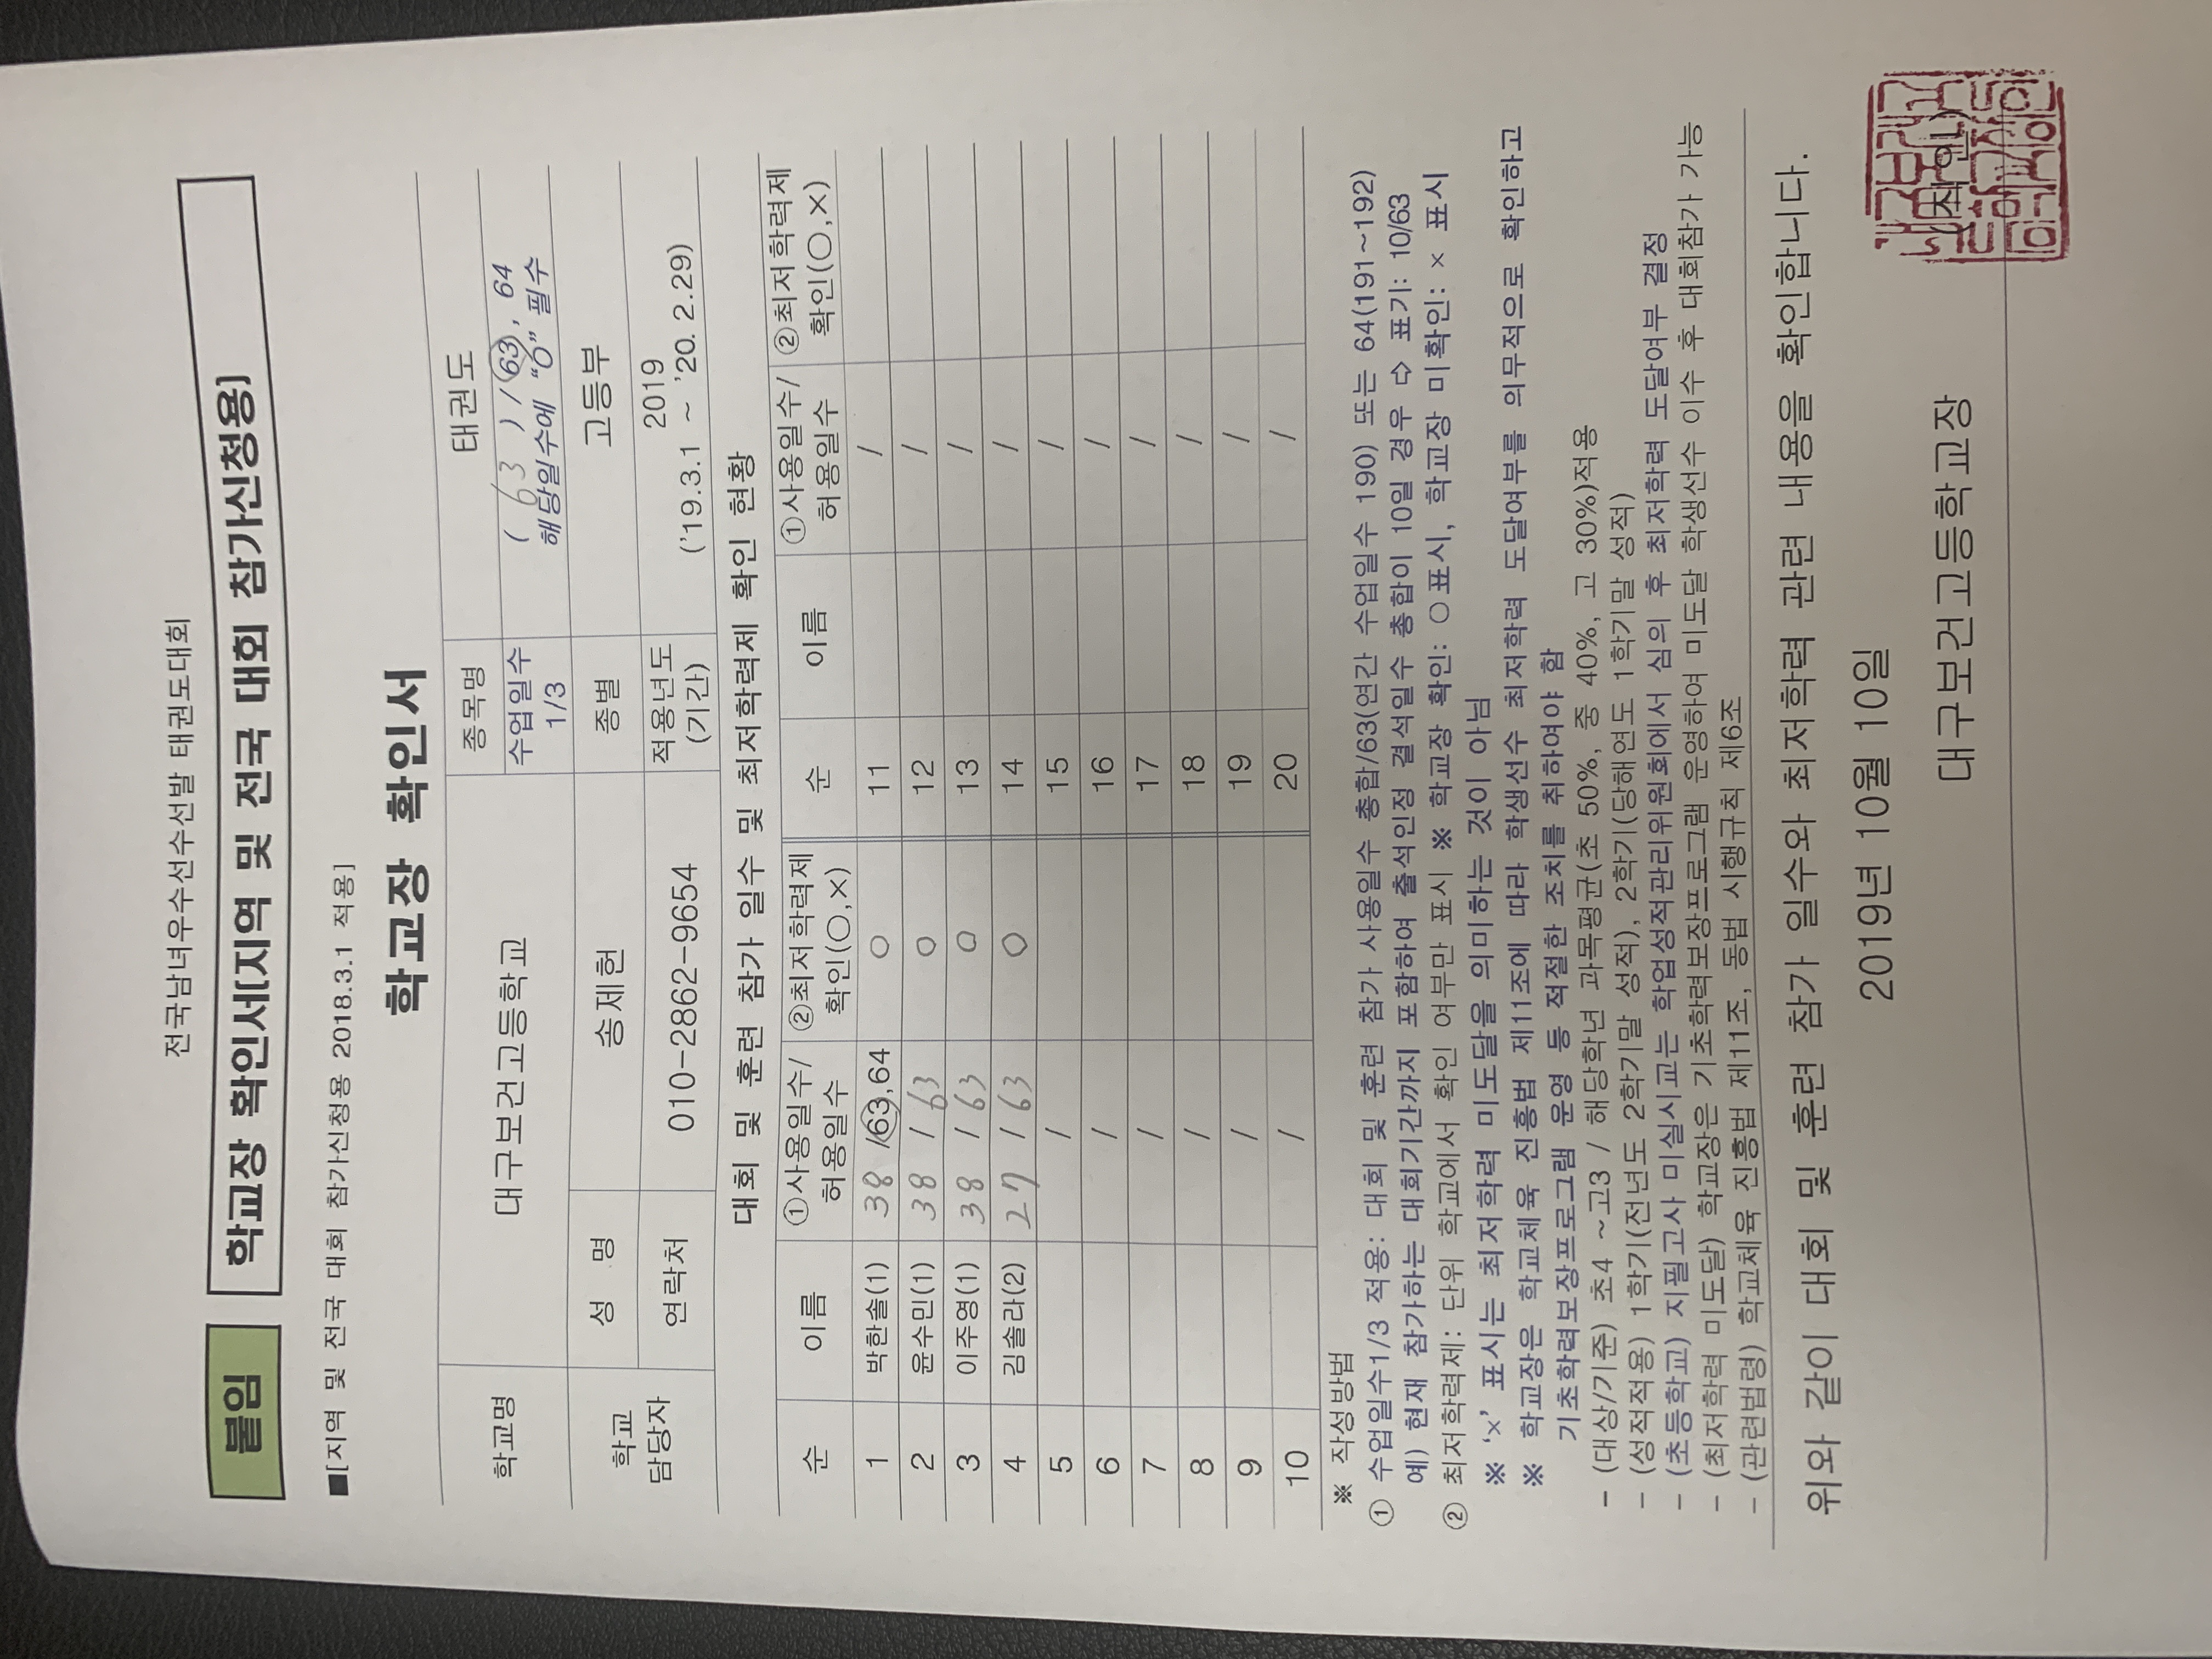 전국남녀우수선수선발 태권도대회
붙임 학교장 확인서(지역 및 전국 대회 참가신청용)
■[지역 및 전국 대회 참가신청용 2018.3.1 적용]
학교장 확인서
학교명 대구보건고등학교 종목명 태권도
수업일수 1/3 ( 63 ) / 63, 64
해당일수에 “O” 필수
학교 담당자 성 명 송제헌 종별 고등부
연락처 010-2862-9654 적용년도 (기간) 2019
('19.3.1 ~ '20. 2.29)
대회 및 훈련 참가 일수 및 최저학력제 확인 현황
순 이름 ①사용일수/허용일수 ②최저학력제 확인(○,×) 순 이름 ①사용일수/허용일수 ②최저학력제 확인(○,×)
1 박한솔(1) 38 /63,64 ○ 11 /
2 윤수민(1) 38 / 63 ○ 12 /
3 이주영(1) 38 / 63 ○ 13 /
4 김솔라(2) 27 / 63 ○ 14 /
5 / 15 /
6 / 16 /
7 / 17 /
8 / 18 /
9 / 19 /
10 / 20 /
※ 작성방법
① 수업일수1/3 적용: 대회 및 훈련 참가 사용일수 총합/63(연간 수업일수 190) 또는 64(191~192)
예) 현재 참가하는 대회기간까지 포함하여 출석인정 결석일수 총합이 10일 경우 ⇨ 표기: 10/63
② 최저학력제: 단위 학교에서 확인 여부만 표시 ※ 학교장 확인: ○표시, 학교장 미확인: × 표시
※ ‘×’ 표시는 최저학력 미도달을 의미하는 것이 아님
※ 학교장은 학교체육 진흥법 제11조에 따라 학생선수 최저학력 도달여부를 의무적으로 확인하고
기초학력보장프로그램 운영 등 적절한 조치를 취하여야 함
- (대상/기준) 초4 ~고3 / 해당학년 과목평균(초 50%, 중 40%, 고 30%)적용
- (성적적용) 1학기(전년도 2학기말 성적), 2학기(당해연도 1학기말 성적)
- (초등학교) 지필고사 미실시교는 학업성적관리위원회에서 심의 후 최저학력 도달여부 결정
- (최저학력 미도달) 학교장은 기초학력보장프로그램 운영하여 미도달 학생선수 이수 후 대회참가 가능
- (관련법령) 학교체육 진흥법 제11조, 동법 시행규칙 제6조
위와 같이 대회 및 훈련 참가 일수와 최저학력 관련 내용을 확인합니다.
2019년 10월 10일
대구보건고등학교장 (직인)